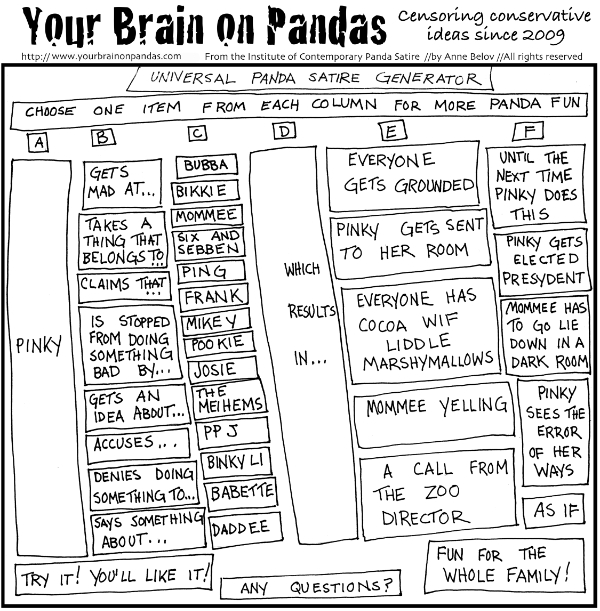 Your Brain on Pandas
Censoring conservative
ideas since 2009
http://www.yourbrainonpandas.com
From the Institute of Contemporary Panda Satire //by Anne Belov //All rights reserved
UNIVERSAL PANDA SATIRE GENERATOR
CHOOSE ONE ITEM FROM EACH COLUMN FOR MORE PANDA FUN
A
B
C
D
E
F
PINKY
GETS
MAD AT...
TAKES A
THING THAT
BELONGS TO...
CLAIMS THAT...
IS STOPPED
FROM DOING
SOMETHING
BAD BY...
GETS AN
IDEA ABOUT...
ACCUSES...
DENIES DOING
SOMETHING TO...
SAYS SOMETHING
ABOUT...
BUBBA
BIKKIE
MOMMEE
SIX AND
SEBBEN
PING
FRANK
MIKEY
POOKIE
JOSIE
THE
MEIHEMS
PPJ
BINKY LI
BABETTE
DADDEE
WHICH
RESULTS
IN...
EVERYONE
GETS GROUNDED
PINKY GETS SENT
TO HER ROOM
EVERYONE HAS
COCOA WIF
LIDDLE
MARSHYMALLOWS
MOMMEE YELLING
A CALL FROM
THE ZOO
DIRECTOR
UNTIL THE
NEXT TIME
PINKY DOES
THIS
PINKY GETS
ELECTED
PRESYDENT
MOMMEE HAS
TO GO LIE
DOWN IN A
DARK ROOM
PINKY
SEES THE
ERROR
OF HER
WAYS
AS IF
TRY IT! YOU'LL LIKE IT!
ANY QUESTIONS?
FUN FOR THE
WHOLE FAMILY!